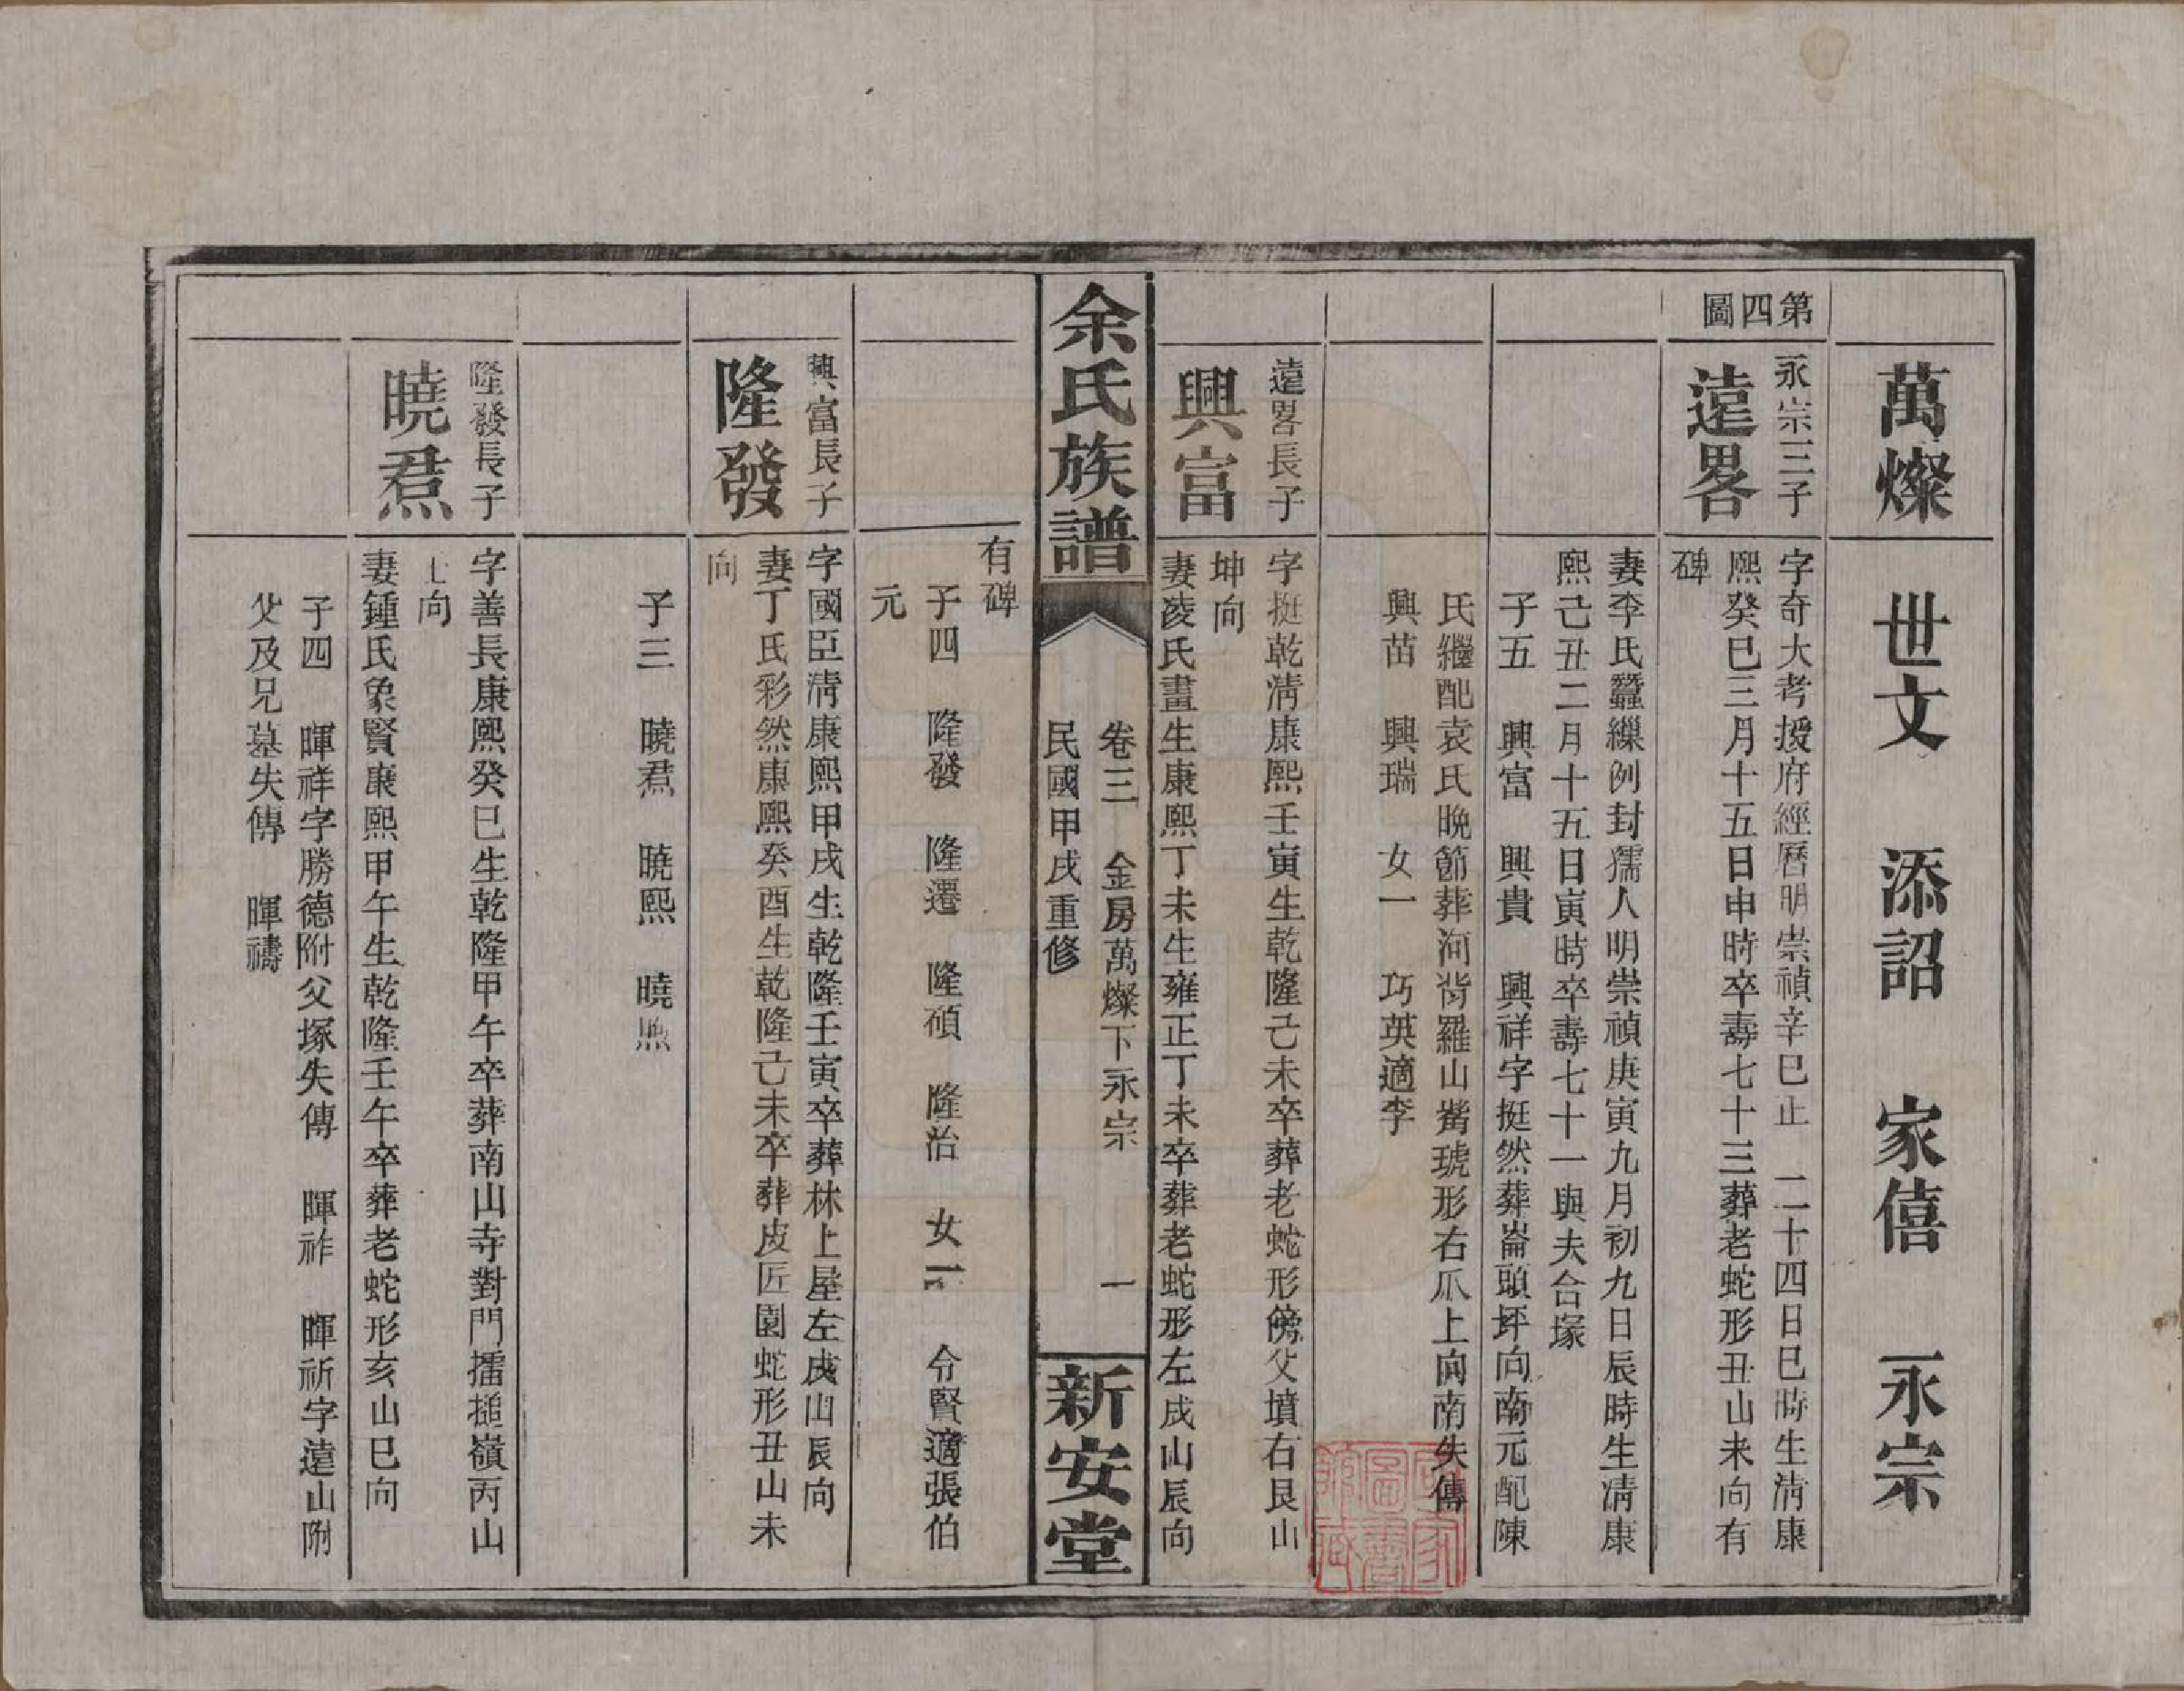 萬燦 世文 添詔 家僖 永宗
第四圖
永宗三子
遠畧
字奇大考授府經曆明崇禎辛巳正 二十四日巳時生清康
熙癸巳三月十五日申時卒壽七十三葬老蛇形丑山未向有
碑
妻李氏蠶繅例封孺人明崇禎庚寅九月初九日辰時生清康
熙己丑二月十五日寅時卒壽七十一與夫合塚
子五 興富 興貴 興祥字挺然葬崙頭坪向南元配陳
氏繼配袁氏晚節葬河背羅山嘴琥形右爪上向南失傳
興苗 興瑞 女一 巧英適李
遠畧長子
興富
字挺乾清康熙壬寅生乾隆己未卒葬老蛇形傍父墳右艮山
坤向
妻凌氏畫生康熙丁未生雍正丁未卒葬老蛇形左戌山辰向
余氏族譜
卷三 金房萬燦下永宗 一
民國甲戌重修
新安堂
有碑
子四 隆發 隆遷 隆碩 隆治 女二 令賢適張伯
元
興富長子
隆發
字國臣清康熙甲戌生乾隆壬寅卒葬林上屋左戌山辰向
妻丁氏彩然康熙癸酉生乾隆己未卒葬皮匠園蛇形丑山未
向
子三 曉焄 曉熙 曉㷩
隆發長子
曉焄
字善長康熙癸巳生乾隆甲午卒葬南山寺對門擂搥嶺丙山
向
妻鍾氏象賢康熙甲午生乾隆壬午卒葬老蛇形亥山巳向
子四 暉祥字勝德附父塚失傳 暉祚 暉祈字遠山附
父及兄墓失傳 暉禱